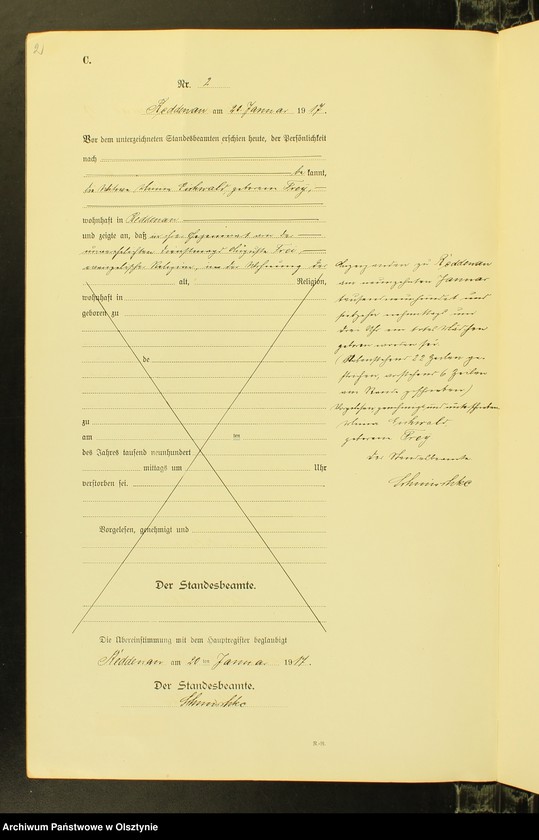 2
C.
Nr. 2
Reddenau am 20 Januar 1917.
Vor dem unterzeichneten Standesbeamten erschien heute, der Persönlichkeit
nach
be kannt,
die Witwe Anna Eichwald geborene Frey,
wohnhaft in Reddenau
und zeigte an, daß in ihrer Gegenwart von der
unverehelichten Auguste
evangelischer Religion, in der Wohnung der
alt, Religion,
wohnhaft in
geboren zu
de
zu
am ten
des Jahres tausend neunhundert
mittags um Uhr
verstorben sei.
Vorgelesen, genehmigt und
Der Standesbeamte.
Die Übereinstimmung mit dem Hauptregister beglaubigt
Reddenau am 20 ten Januar 1917.
Der Standesbeamte.
zu Reddenau
am neunzehnten Januar
tausend neunhundert und
siebzehn nachmittags um
drei Uhr ein totes Mädchen
geboren worden sei.
(Nebenstehend 22 Zeilen ge-
strichen, vorstehend 6 Zeilen
am Rande geschrieben)
Vorgelesen, genehmigt und unterschrieben
Anna Eichwald
geborene Frey
Der Standesbeamte
Archiwum Państwowe w Olsztynie